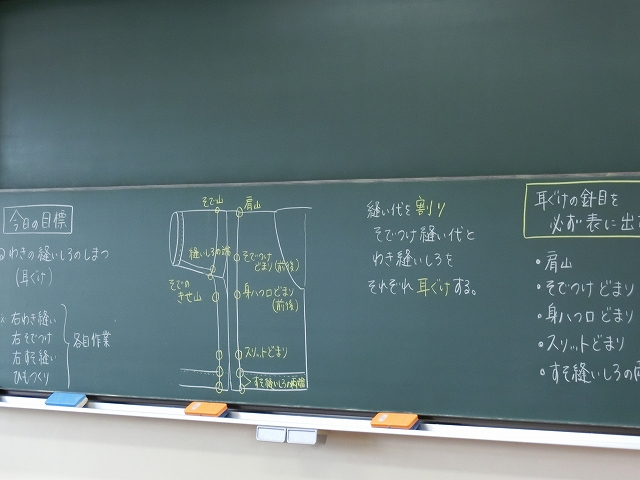 今日の目標
わきの縫いしろのしまつ
(耳ぐけ)
右わき縫い
右そでつけ
右すそ縫い
ひもつくり
各自作業
そで山
肩山
縫いしろの端
そでつけ
どまり(前後)
そでの
きせ山
身ハツ口どまり
(前後)
スリットどまり
すそ縫いしろの両端
縫い代を割り
そでつけ縫い代と
わき縫いしろを
それぞれ耳ぐけする。
耳ぐけの針目を
必ず表に出
・肩山
・そでつけどまり
・身ハツ口どまり
・スリットどまり
・すそ縫いしろの